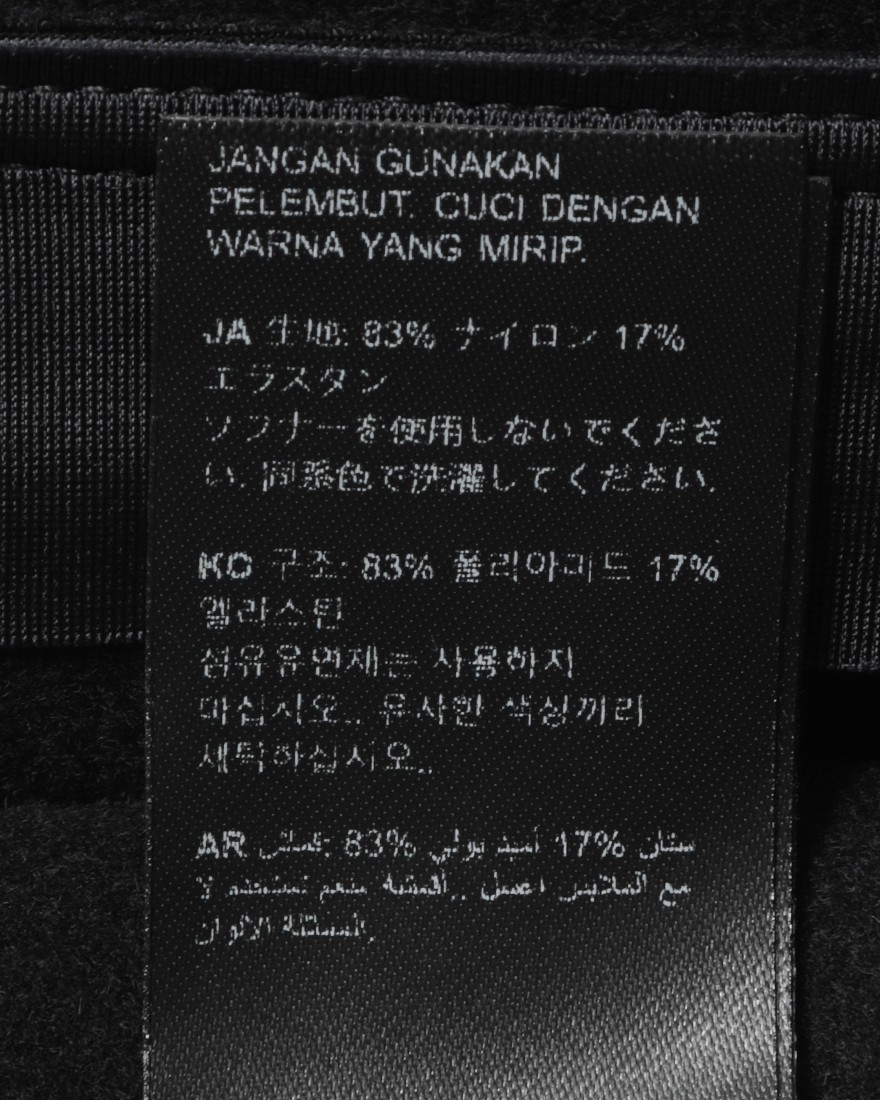 JANGAN GUNAKAN
PELEMBUT. CUCI DENGAN
WARNA YANG MIRIP.
JA 生地: 83% ナイロン 17%
エラスタン
ソフナーを使用しないでくださ
い. 同系色で洗濯してください.
KO 구조: 83% 폴리아미드 17%
엘라스틴
섬유유연제는 사용하지
마십시오.. 유사한 색상끼리
세탁하십시오..
AR قماش: 83% أميد بولي 17% ستان
مع الملابس اغسل .. أقمشة منعم تستخدم لا
الألوان